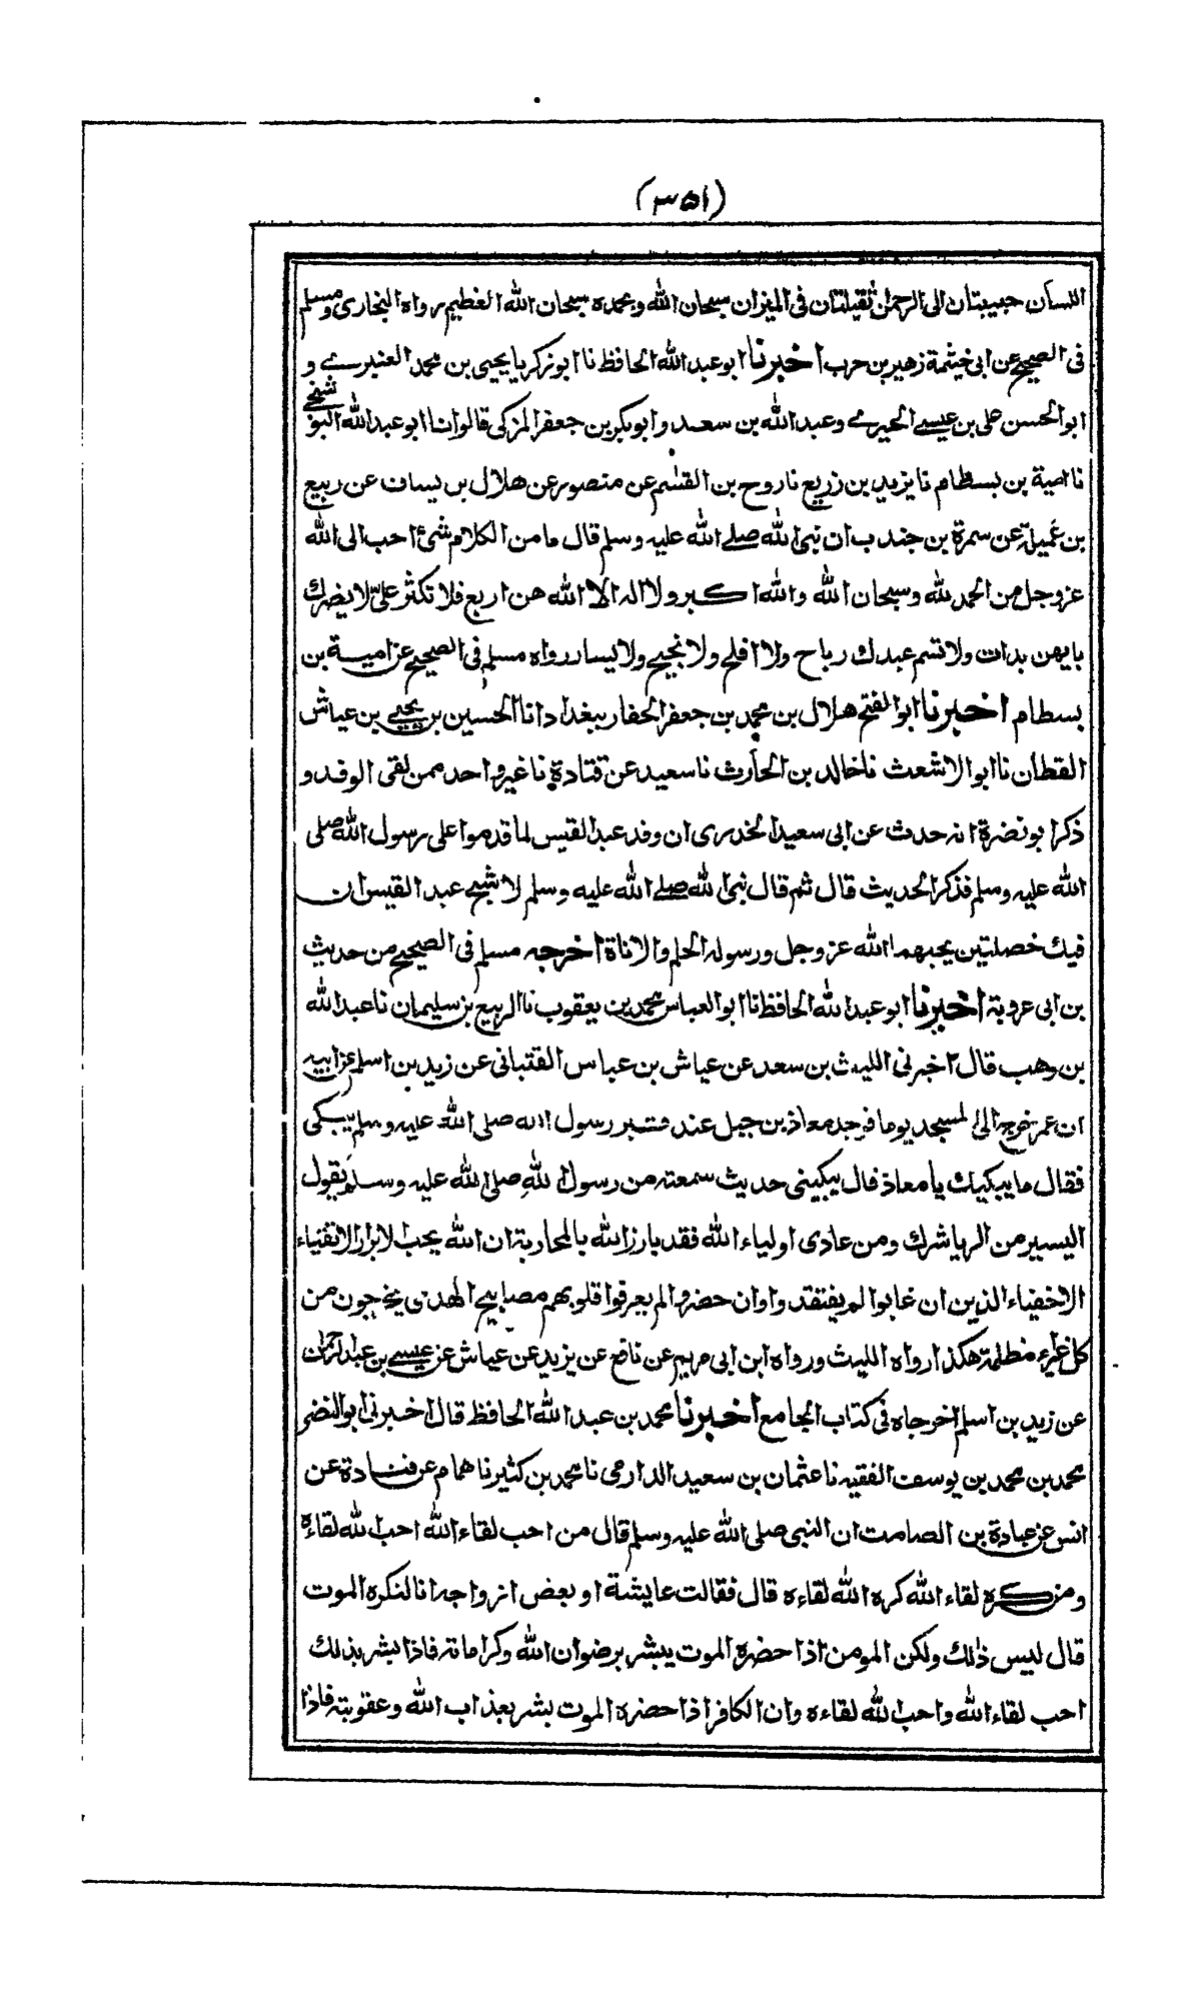 (٣٥١)
اللسان حبيبتان الى الرحمن ثقيلتان فى الميزان سبحان الله وبحمده سبحان الله العظيم رواه البخارى ومسلم
فى الصحيح عن ابى خيثمة زهير بن حرب اخبرنا ابو عبد الله الحافظ نا ابو زكريا يحيى بن محمد العنبرے و
ابو الحسن على بن عيسے الحيرے وعبد الله بن سعد وابو بكر بن جعفر المزكى قالوا نا ابو عبد الله البوشنجے
نا امية بن بسطام نا يزيد بن زريع نا روح بن القسٰم عن منصور عن هلال بن يساف عن ربيع
بن عَميلة عن سمرة بن جندب ان نبى الله صلے الله عليه وسلم قال ما من الكلام شئ احب الى الله
عز وجل من الحمد لله وسبحان الله والله اكبر ولا اله الا الله هن اربع فلا تكثر علىّ لا يضرك
بايهن بدات ولا تسم عبدك رباح ولا افلح ولا نجيح ولا يسار رواه مسلم فى الصحيح عن امية بن
بسطام اخبرنا ابو الفتح هلال بن محمد بن جعفر الحفار ببغداد انا الحسين بن يحيے بن عياش
القطان نا ابو الاشعث نا خالد بن الحارث نا سعيد عن قتادة نا غير واحد ممن لقى الوفد و
ذكر ابو نضرة انه حدث عن ابى سعيد الخدرى ان وفد عبد القيس لما قدموا على رسول الله صلى
الله عليه وسلم فذكر الحديث قال ثم قال نبى الله صلے الله عليه وسلم لاشبح عبد القيس ان
فيك خصلتين يحبهما الله عز وجل ورسوله الحلم والاناة اخرجه مسلم فى الصحيح من حديث
بن ابى عروبة اخبرنا ابو عبد الله الحافظ نا ابو العباس محمد بن يعقوب نا الربيع بن سليمان نا عبد الله
بن وهب قال اخبرنى الليث بن سعد عن عياش بن عباس القتبانى عن زيد بن اسلم عن ابيه
ان عمر خرج الى المسجد يوما فوجد معاذ بن جبل عند قبر رسول الله صلى الله عليه وسلم يبكى
فقال ما يبكيك يا معاذ قال يبكينى حديث سمعته من رسول الله صلى الله عليه وسلم يقول
اليسير من الريا شرك ومن عادى اولياء الله فقد بارز الله بالمحاربة ان الله يحب الابرار الاتقياء
الاخفياء الذين ان غابوا لم يفتقدوا وان حضروا لم يعرفوا قلوبهم مصابيح الهدى يخرجون من
كل غبراء مظلمة هكذا رواه الليث ورواه ابن ابى مريم عن نافع عن يزيد عن عياش عن عيسے بن عبد الرحمن
عن زيد بن اسلم اخرجاه فى كتاب الجامع اخبرنا محمد بن عبد الله الحافظ قال اخبرنى ابو النضر
محمد بن محمد بن يوسف الفقيه نا عثمان بن سعيد الدارمى نا محمد بن كثير نا همام عن قتادة عن
انس عن عبادة بن الصامت ان النبى صلى الله عليه وسلم قال من احب لقاء الله احب الله لقاءه
ومن كره لقاء الله كره الله لقاءه قال فقالت عايشة او بعض ازواجه انا لنكره الموت
قال ليس ذلك ولكن المومن اذا حضره الموت يبشر برضوان الله وكرامانه فاذا بشر بذلك
احب لقاء الله واحب الله لقاءه وان الكافر اذا حضره الموت بشر بعذاب الله وعقوبته فاذا